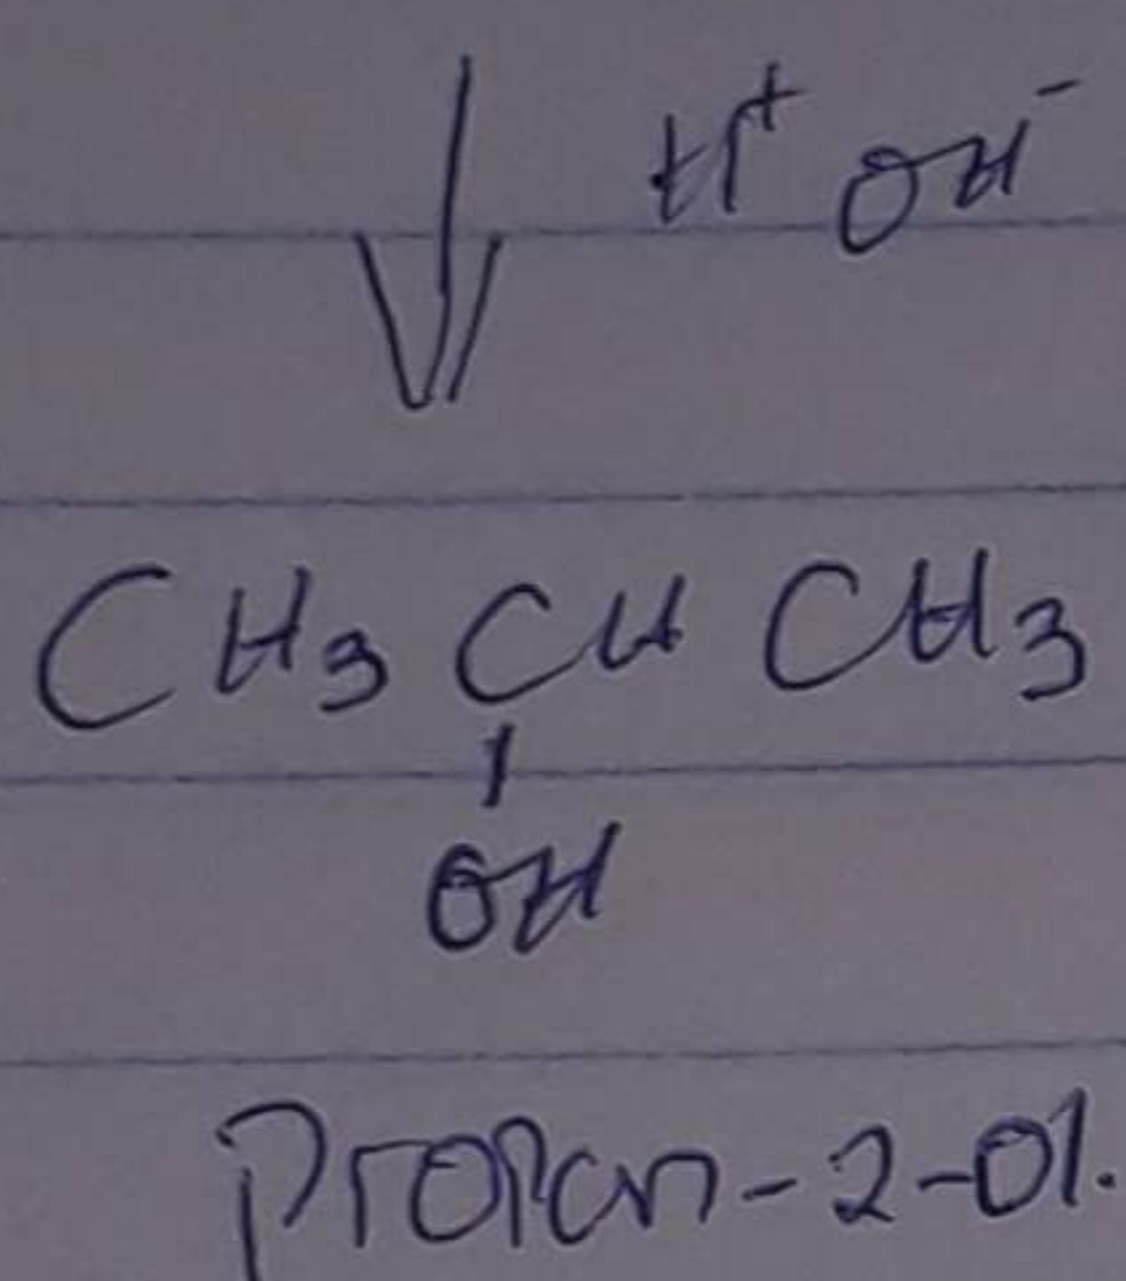 H⁺ OH⁻
CH₃ CH CH₃
OH
Propan-2-ol.